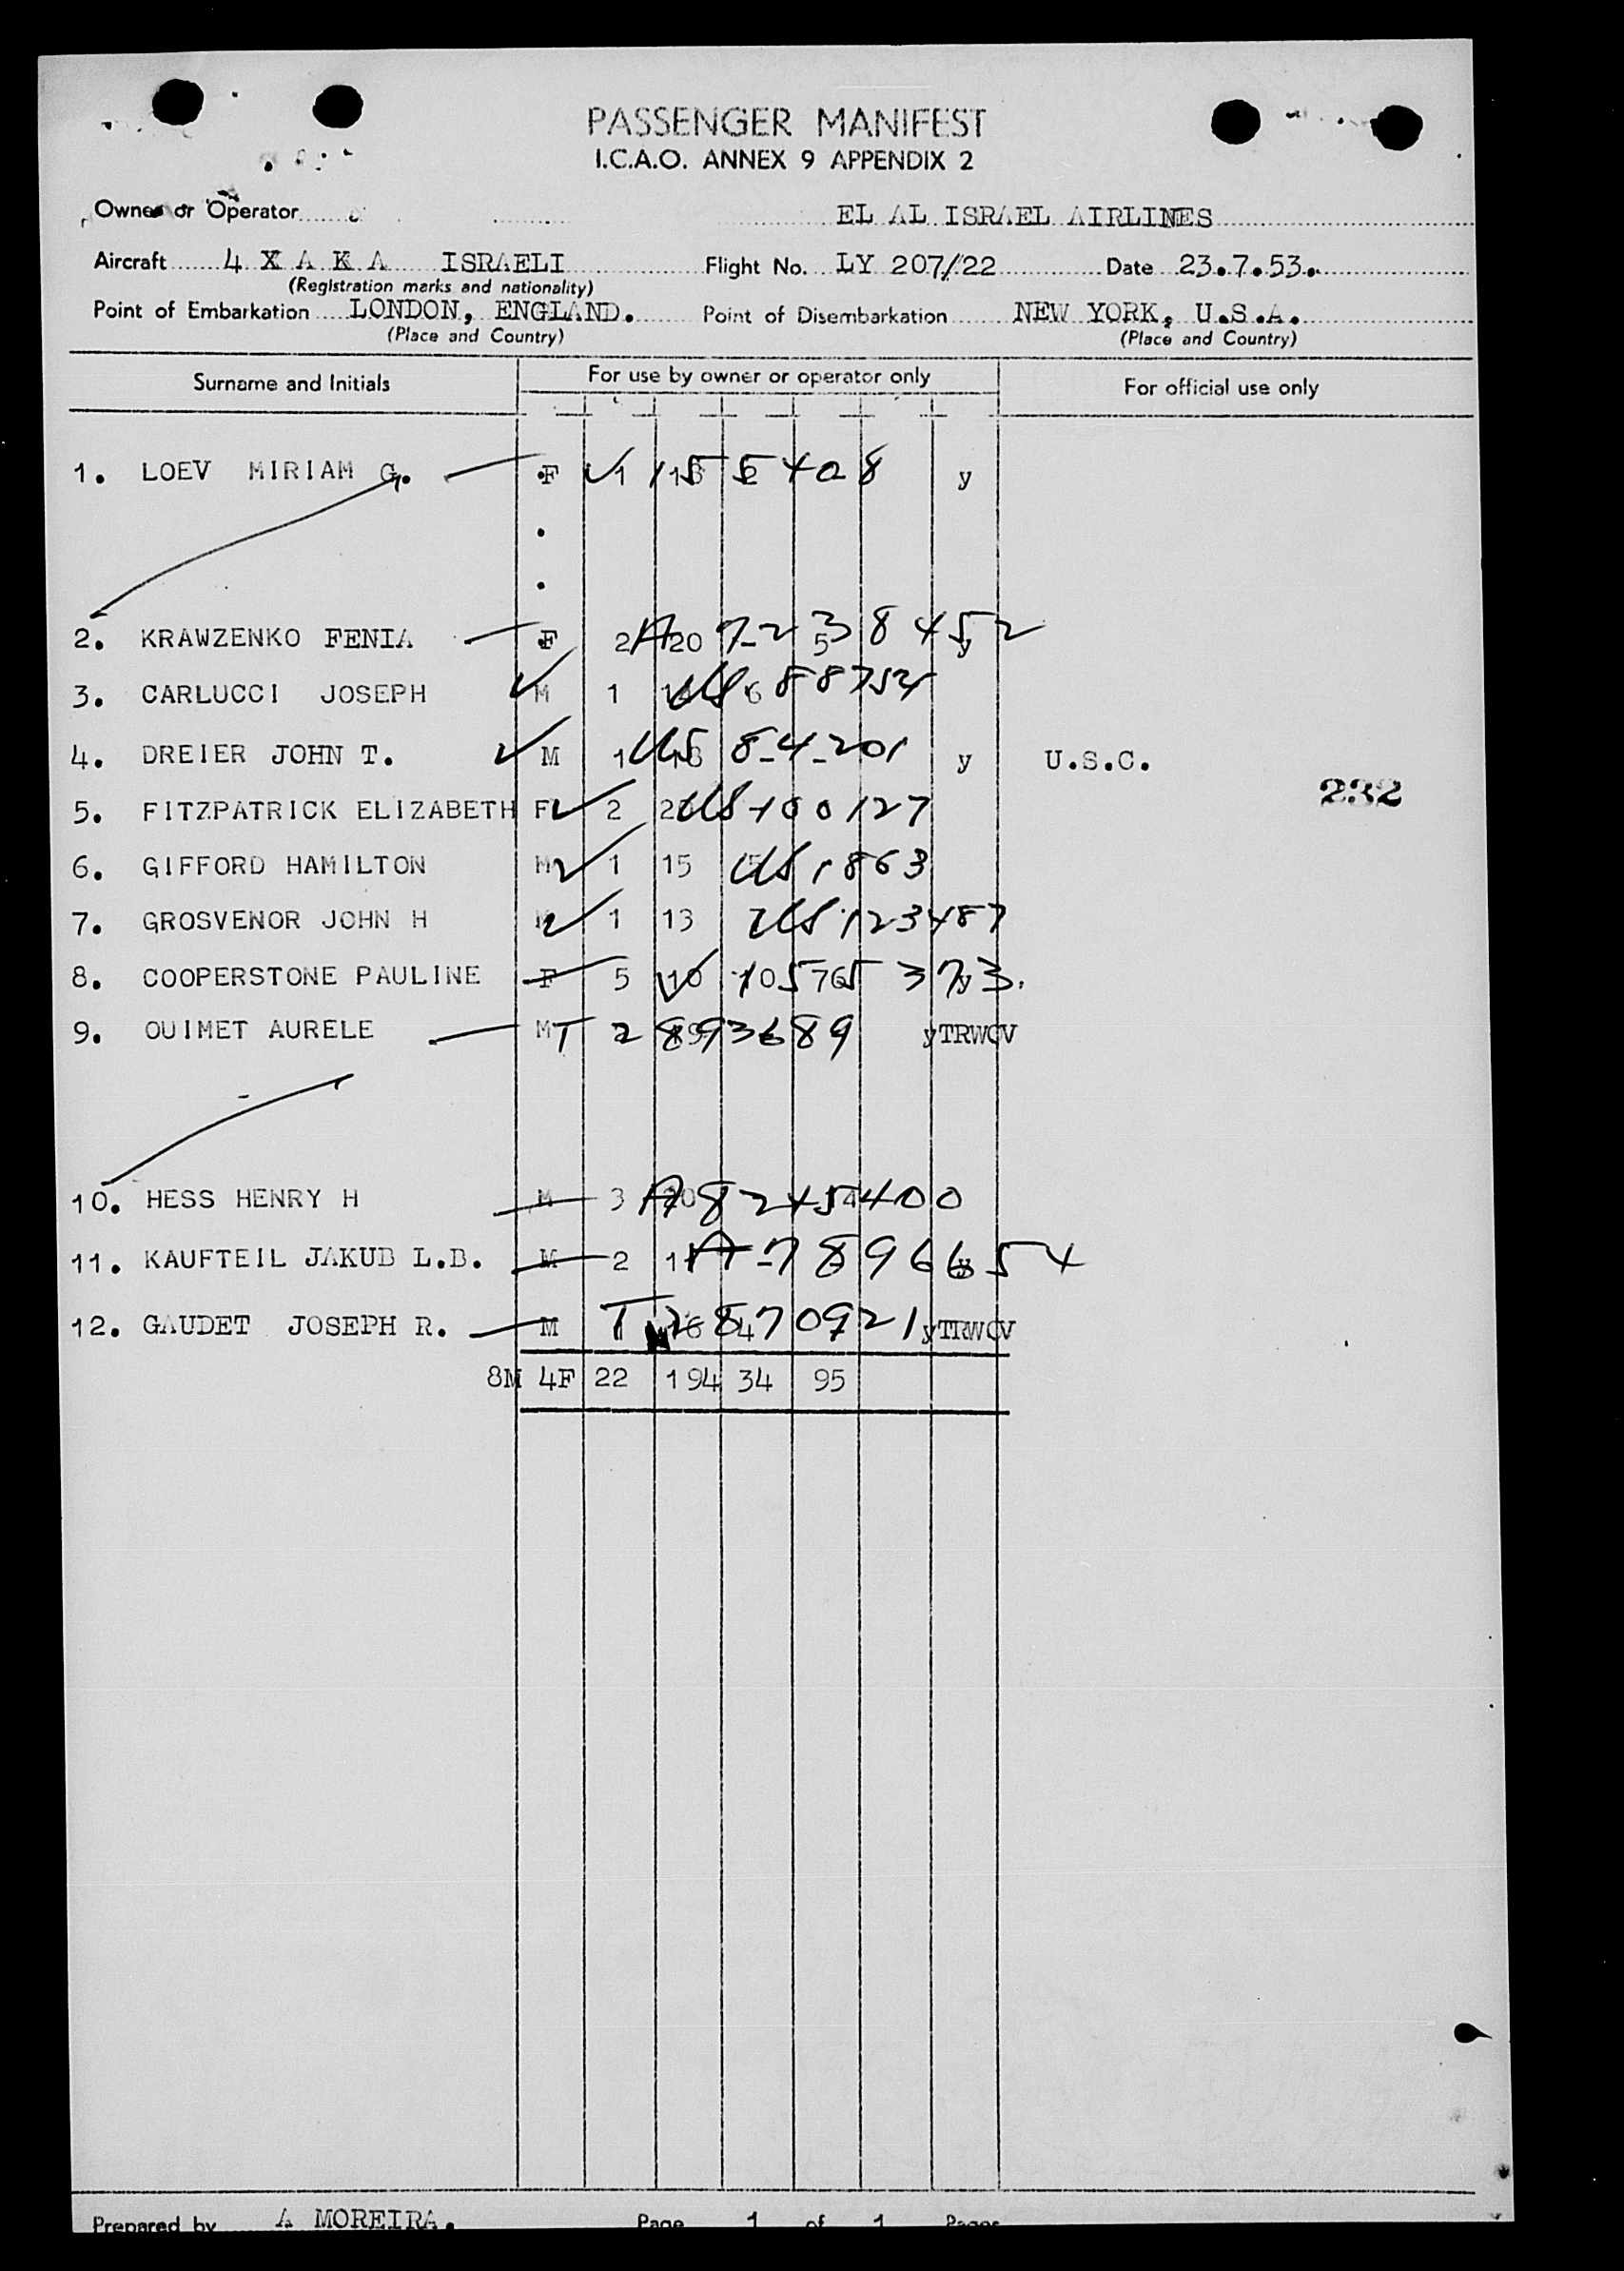 PASSENGER MANIFEST
I.C.A.O. ANNEX 9 APPENDIX 2
Owner or Operator EL AL ISRAEL AIRLINES
Aircraft 4 X A K A ISRAELI Flight No. LY 207/22 Date 23.7.53.
(Registration marks and nationality)
Point of Embarkation LONDON, ENGLAND. Point of Disembarkation NEW YORK, U.S.A.
(Place and Country) (Place and Country)
Surname and Initials For use by owner or operator only For official use only
1. LOEV MIRIAM G. F 1 y
2. KRAWZENKO FENIA F 2 A 20 7-238452 y
3. CARLUCCI JOSEPH M 1 US 88754
4. DREIER JOHN T. M 1 US 8-4-201 y U.S.C.
232
5. FITZPATRICK ELIZABETH F 2 US 100127
6. GIFFORD HAMILTON M 1 15 US 1863
7. GROSVENOR JOHN H M 1 13 US 123487
8. COOPERSTONE PAULINE F 5 10 y
9. OUIMET AURELE M T 2893689 yTRWOV
10. HESS HENRY H M 3 A 8245400
11. KAUFTEIL JAKUB L.B. M 2 A-7896654
12. GAUDET JOSEPH R. M T 2870921 yTRWOV
8M 4F 22 194 34 95
Prepared by A MOREIRA. Page 1 of 1 Pages